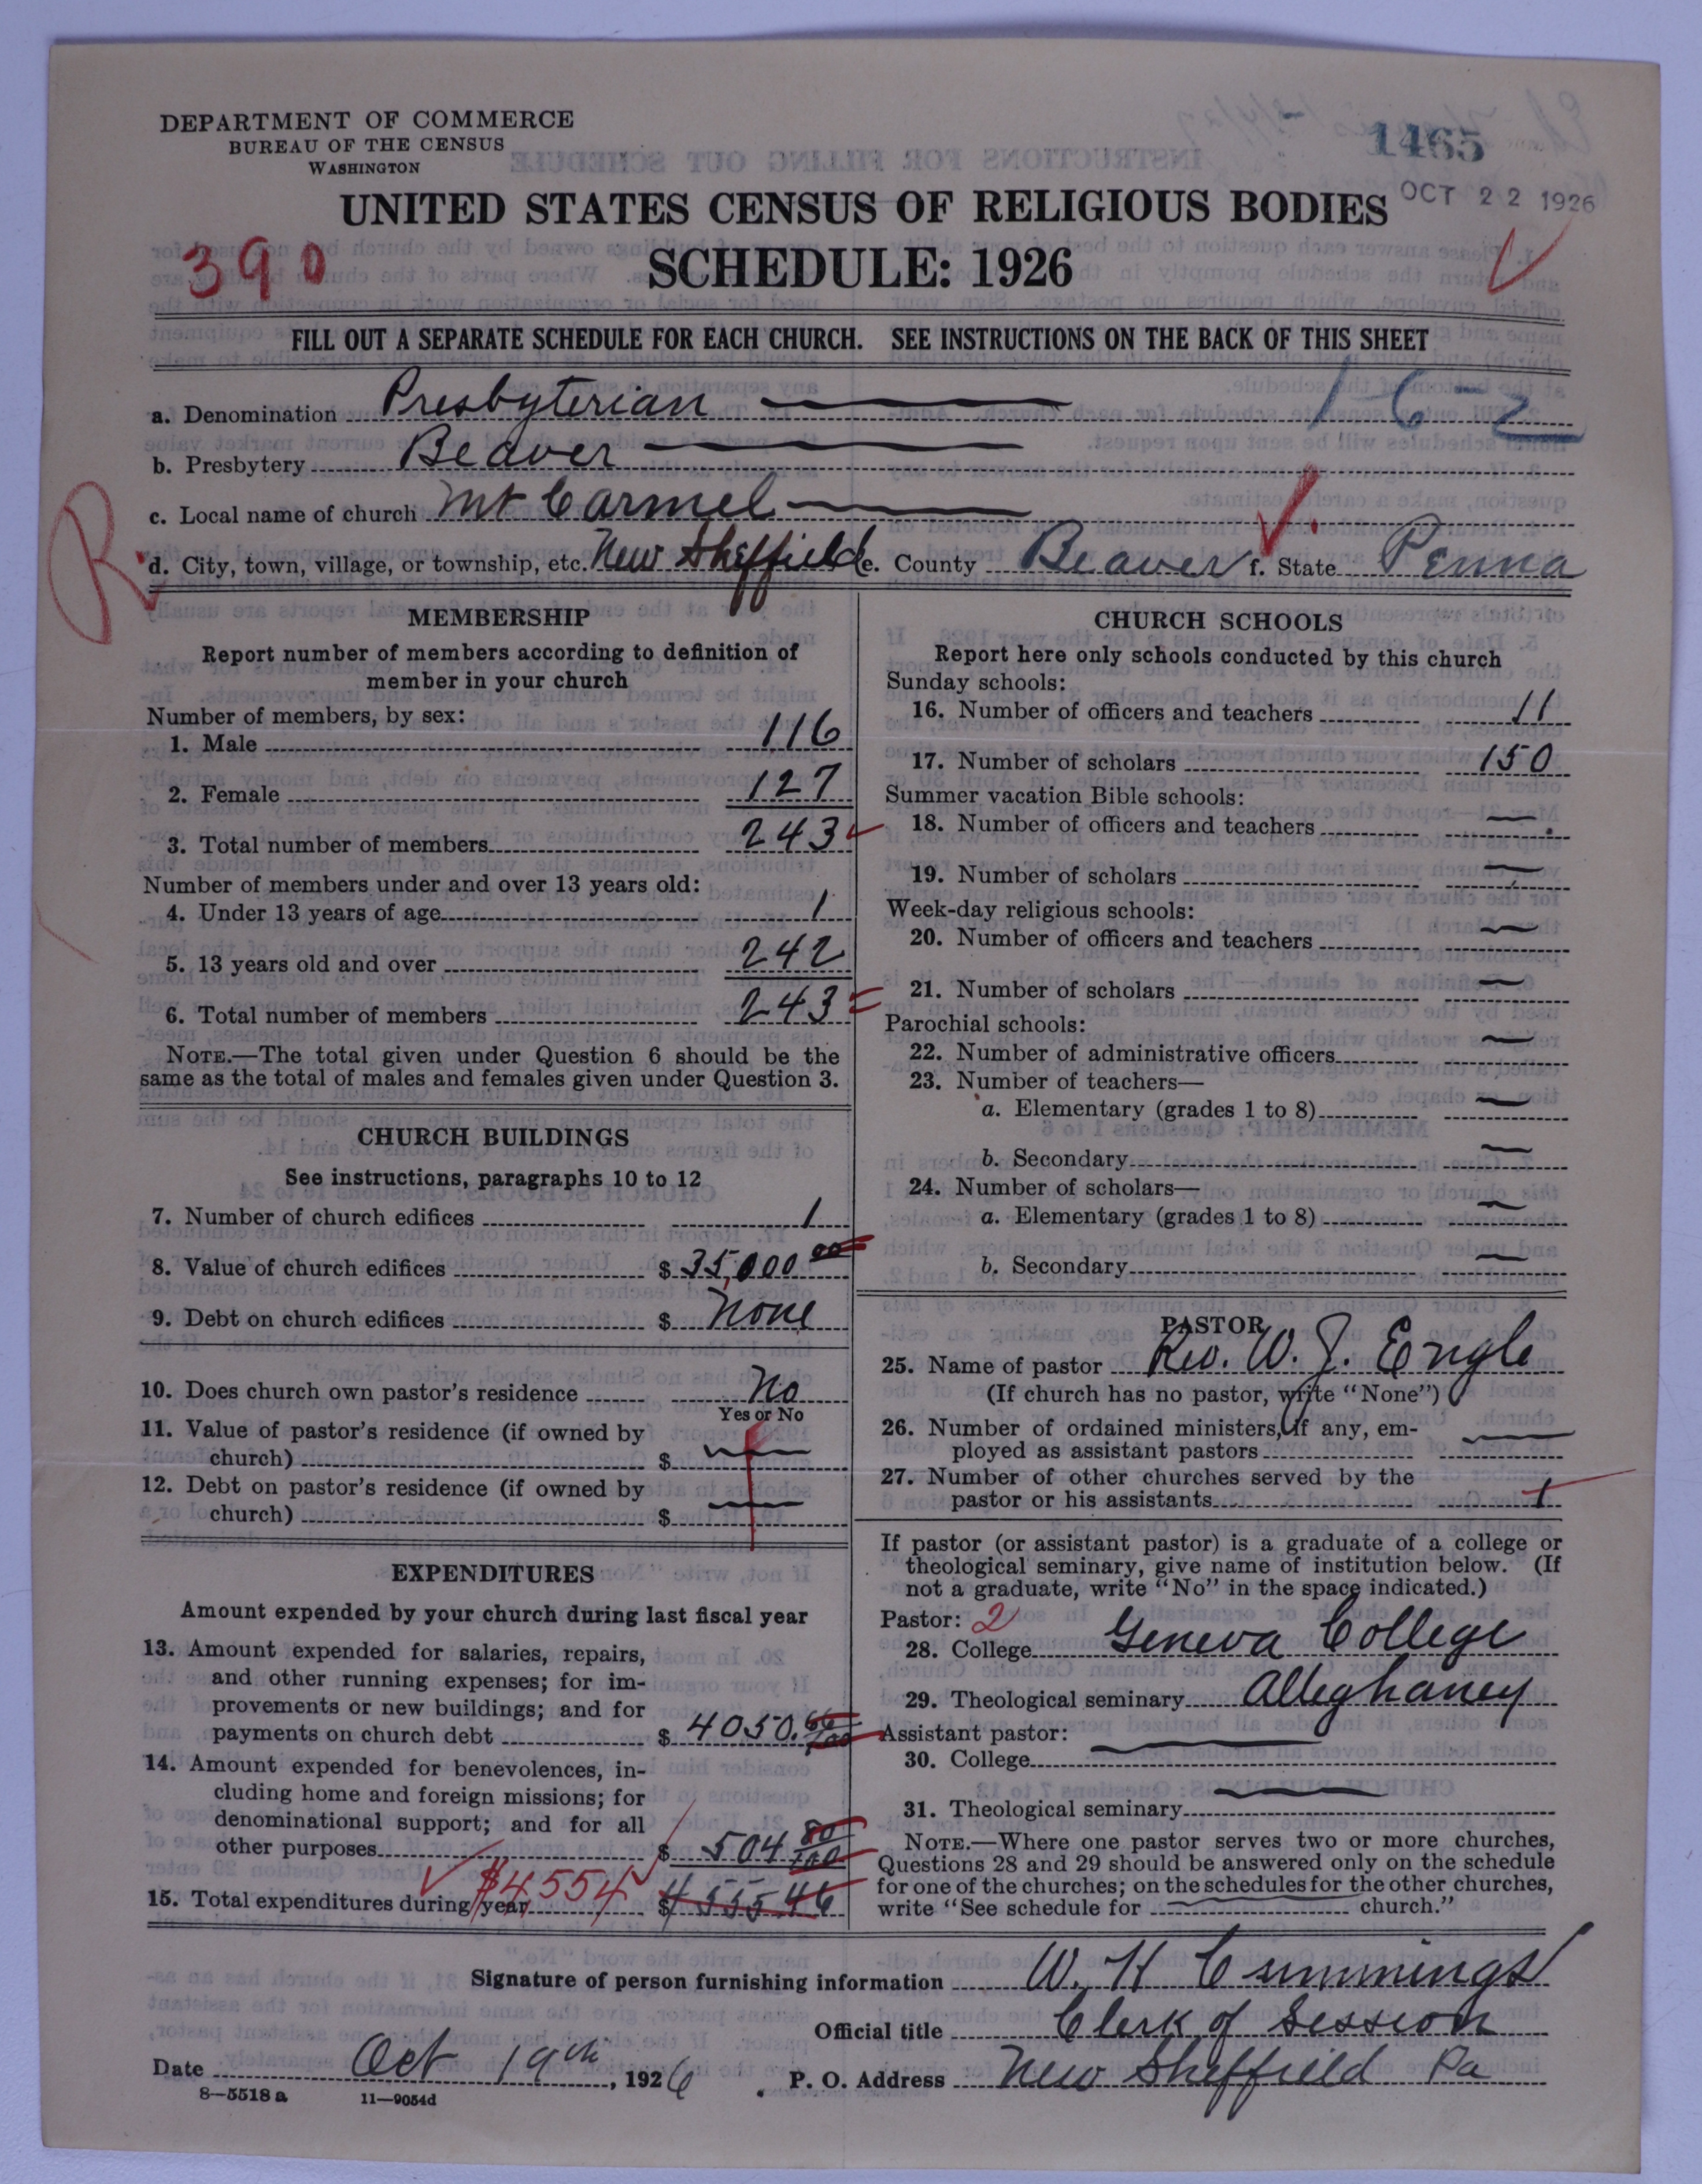 DEPARTMENT OF COMMERCE
BUREAU OF THE CENSUS
WASHINGTON
1465
OCT 22 1926
UNITED STATES CENSUS OF RELIGIOUS BODIES
390
SCHEDULE: 1926
FILL OUT A SEPARATE SCHEDULE FOR EACH CHURCH. SEE INSTRUCTIONS ON THE BACK OF THIS SHEET
1-6-2
a. Denomination Presbyterian
b. Presbytery Beaver
c. Local name of church Mt Carmel
R
d. City, town, village, or township, etc. New Sheffield e. County Beaver f. State Penna
MEMBERSHIP
Report number of members according to definition of
member in your church
Number of members, by sex:
1. Male 116
2. Female 127
3. Total number of members 243
Number of members under and over 13 years old:
4. Under 13 years of age 1
5. 13 years old and over 242
6. Total number of members 243
NOTE.—The total given under Question 6 should be the
same as the total of males and females given under Question 3.
CHURCH BUILDINGS
See instructions, paragraphs 10 to 12
7. Number of church edifices 1
8. Value of church edifices $ 35,000 00
9. Debt on church edifices $ None
10. Does church own pastor's residence No
Yes or No
11. Value of pastor's residence (if owned by
church) $ —
12. Debt on pastor's residence (if owned by
church) $ —
EXPENDITURES
Amount expended by your church during last fiscal year
13. Amount expended for salaries, repairs,
and other running expenses; for im-
provements or new buildings; and for
payments on church debt $ 4050.66/100
14. Amount expended for benevolences, in-
cluding home and foreign missions; for
denominational support; and for all
other purposes $ 504 80/100
15. Total expenditures during year $4554 $ 4555 46
CHURCH SCHOOLS
Report here only schools conducted by this church
Sunday schools:
16. Number of officers and teachers 11
17. Number of scholars 150
Summer vacation Bible schools:
18. Number of officers and teachers —
19. Number of scholars —
Week-day religious schools:
20. Number of officers and teachers —
21. Number of scholars —
Parochial schools:
22. Number of administrative officers —
23. Number of teachers—
a. Elementary (grades 1 to 8) —
b. Secondary —
24. Number of scholars—
a. Elementary (grades 1 to 8) —
b. Secondary —
PASTOR
25. Name of pastor Rev. W. J. Engle
(If church has no pastor, write "None")
26. Number of ordained ministers, if any, em-
ployed as assistant pastors —
27. Number of other churches served by the
pastor or his assistants 1
If pastor (or assistant pastor) is a graduate of a college or
theological seminary, give name of institution below. (If
not a graduate, write "No" in the space indicated.)
Pastor: 2
28. College Geneva College
29. Theological seminary Alleghaney
Assistant pastor:
30. College —
31. Theological seminary —
NOTE.—Where one pastor serves two or more churches,
Questions 28 and 29 should be answered only on the schedule
for one of the churches; on the schedules for the other churches,
write "See schedule for — church."
Signature of person furnishing information W. H Cummings
Official title Clerk of Session
Date Oct 19th, 1926 P. O. Address New Sheffield Pa
8—5518 a 11—9054d